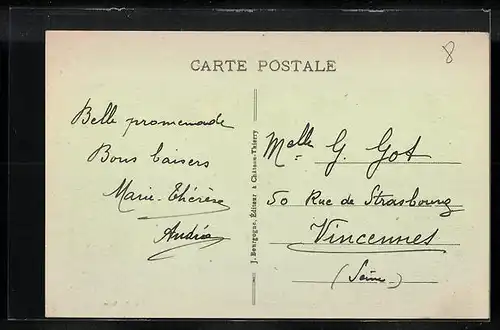 8
CARTE POSTALE
Belle promenade
Bons baisers
Marie-Thérèse
Andrée
J. Bourgogne, Éditeur à Château-Thierry
Melle G. Got
50 Rue de Strasbourg
Vincennes
(Seine)